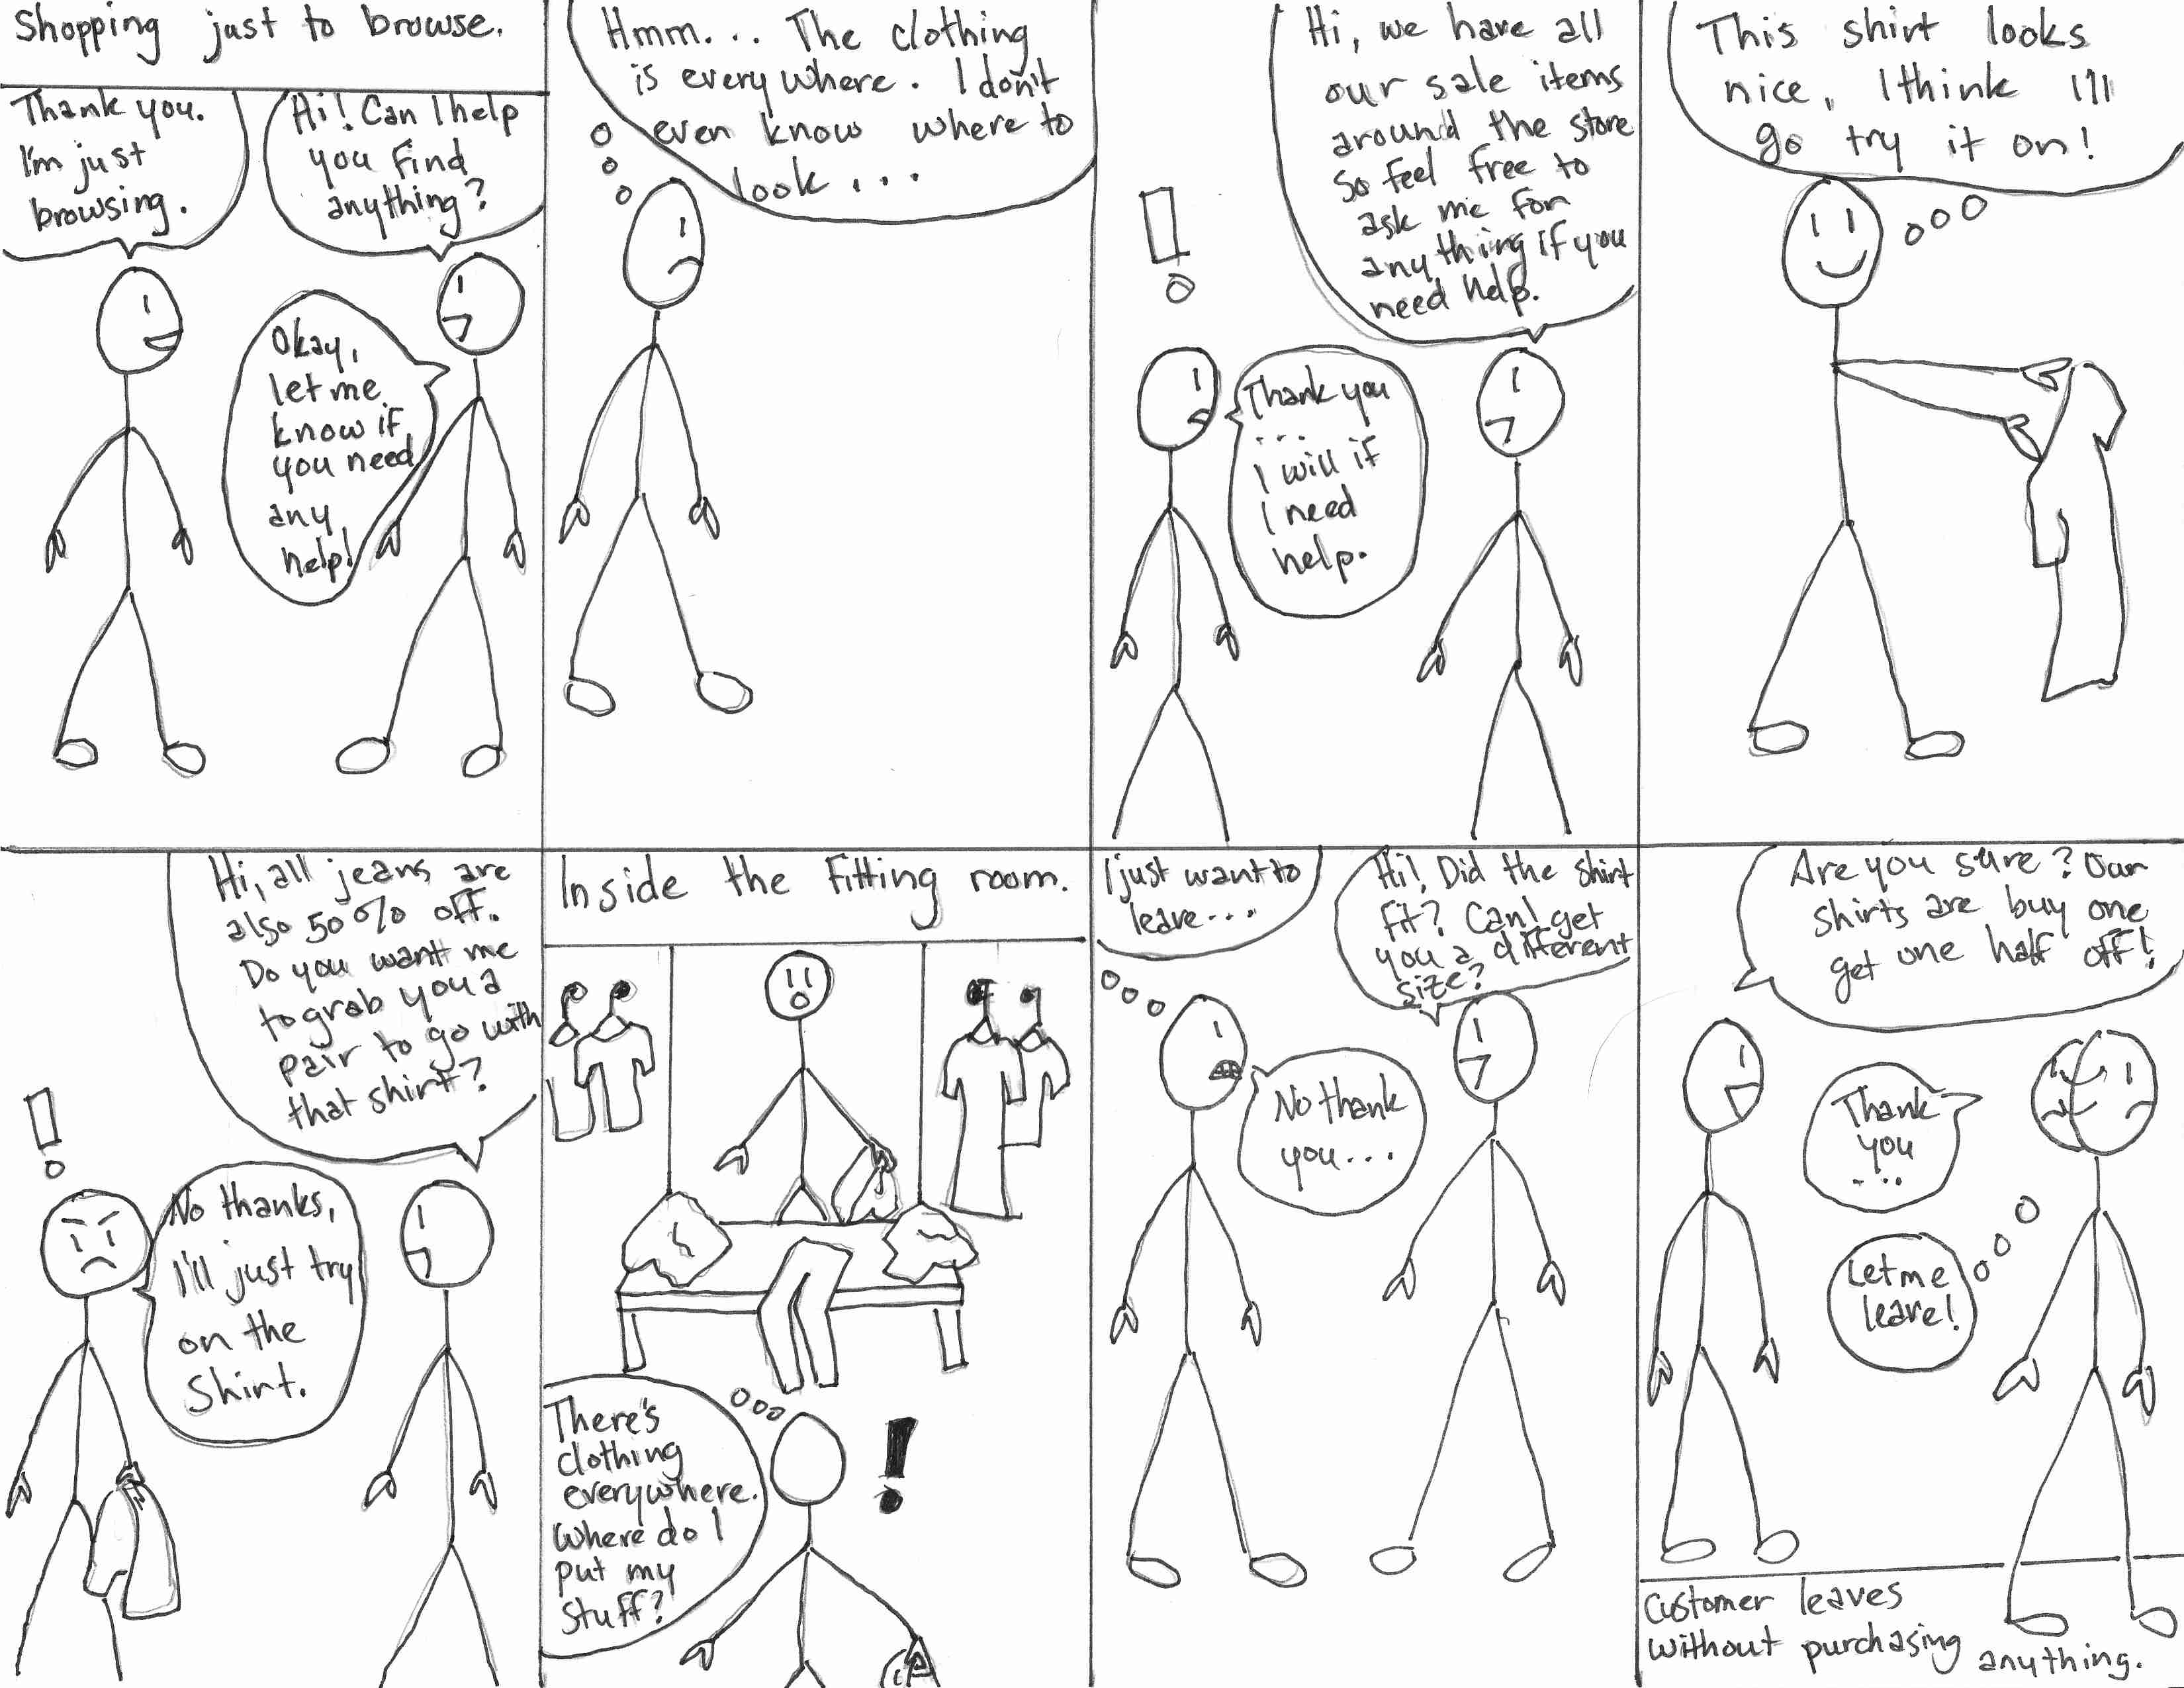 Shopping just to browse.
Thank you.
I'm just
browsing.
Hi! Can I help
you find
anything?
Okay,
let me
know if
you need
any
help!
Hmm... The clothing
is everywhere. I don't
even know where to
look...
Hi, we have all
our sale items
around the store
so feel free to
ask me for
anything if you
need help.
!
Thank you
...
I will if
I need
help.
This shirt looks
nice, I think I'll
go try it on!
Hi, all jeans are
also 50% off.
Do you want me
to grab you a
pair to go with
that shirt?
!
No thanks,
I'll just try
on the
shirt.
Inside the fitting room.
There's
clothing
everywhere.
Where do I
put my
stuff?
!
I just want to
leave...
Hi! Did the shirt
fit? Can I get
you a different
size?
No thank
you...
Are you sure? Our
shirts are buy one
get one half off!
Thank
you
...
Let me
leave!
Customer leaves
without purchasing anything.